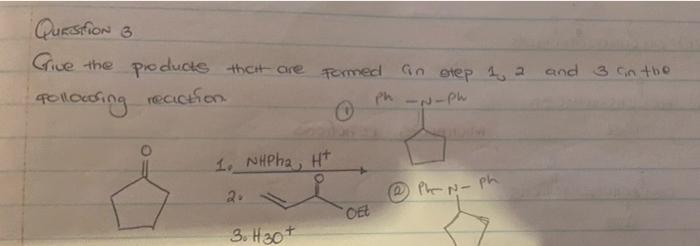 QUESTION 3
Give the products that are formed in step 1, 2 and 3 in the
following reaction
① Ph -N-Ph
O
1. NHPh2, H+
2. O OEt
② Ph-N- Ph
3. H30+